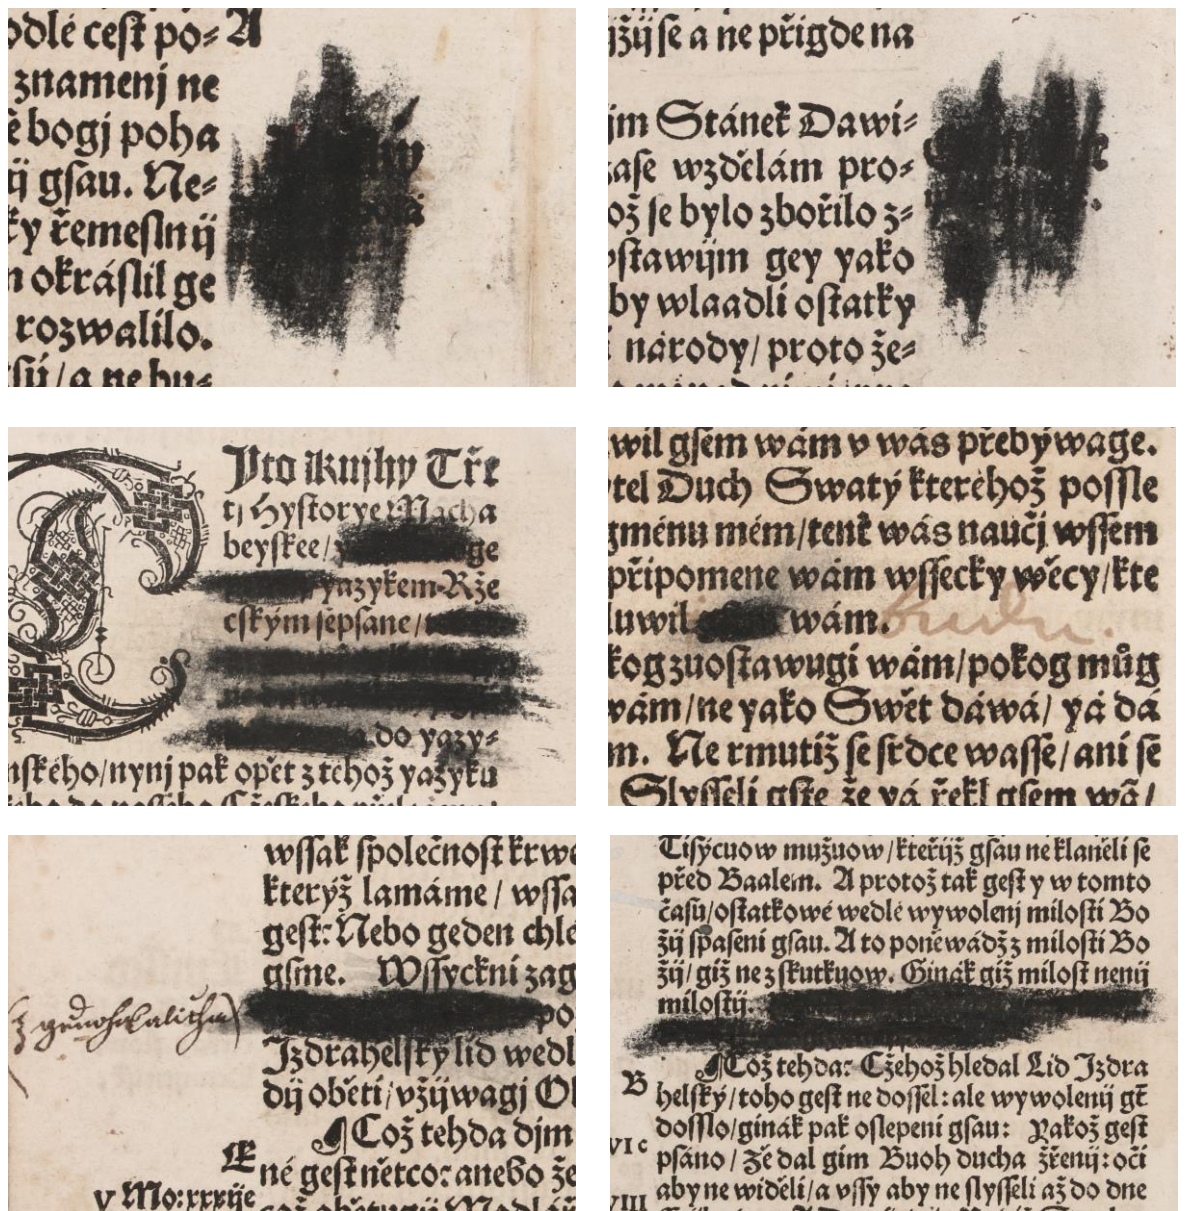 odlé cest po⸗ A
znamenj ne
ě bogj poha
ij gsau. Ne⸗
ky řemeslnij
n okráslil ge
rozwalilo.
sú/a ne bu⸗
žijse a ne přigde na
jm Stánek Dawi⸗
zase wzdělám pro⸗
ož se bylo zbořilo z⸗
ystawijm gey yako
by wlaadli ostatky
národy/ proto že⸗
Yto Knijhy Tře
tj Hystorye Macha
beyskee/ ge
yazykem Rže
ckým sepsane/
do yazy⸗
nského/nynj pak opět z těchož yazyku
wil gsem wám v wás přebýwage.
tel Duch Swatý kteréhož possle
gménu mém/tenť wás naučj wssem
připomene wám wssecky wěcy/kte
luwil wám. Budu.
kog zuostawugi wám/pokog můg
wám/ne yako Swět dáwá/ yá dá
m. Ne rmutiž se srdce wasse/ani se
Slysseli gste že yá řekl gsem wā/
wssak společnost krwe
kterýž lamáme / wssa
gest: Nebo geden chle
gsme. Wssyckni zag
po
Izdrahelský lid wedl
dij oběti/vžijwagj Ol
Což tehda djm
E né gest nětco: anebo že
v Mo:xxxije
Tisýcuow mužuow/kteřijž gsau neklaněli se
před Baalem. A protož tak gest y w tomto
času/ostatkowé wedlé wywolenj milosti Bo
žij spaseni gsau. A to poněwádž z milosti Bo
žij/giž ne z skutkuow. Ginák giž milost nenij
milostij.
Což tehda: Cžehož hledal Lid Izdra
B helský/toho gest ne dossel: ale wywolenij gt̄
dosslo/ginák pak oslepeni gsau: Yakož gest
VI c psáno / Že dal gim Buoh ducha zřenij: oči
aby ne widěli/a vssy aby ne slysseli až do dne
VIII